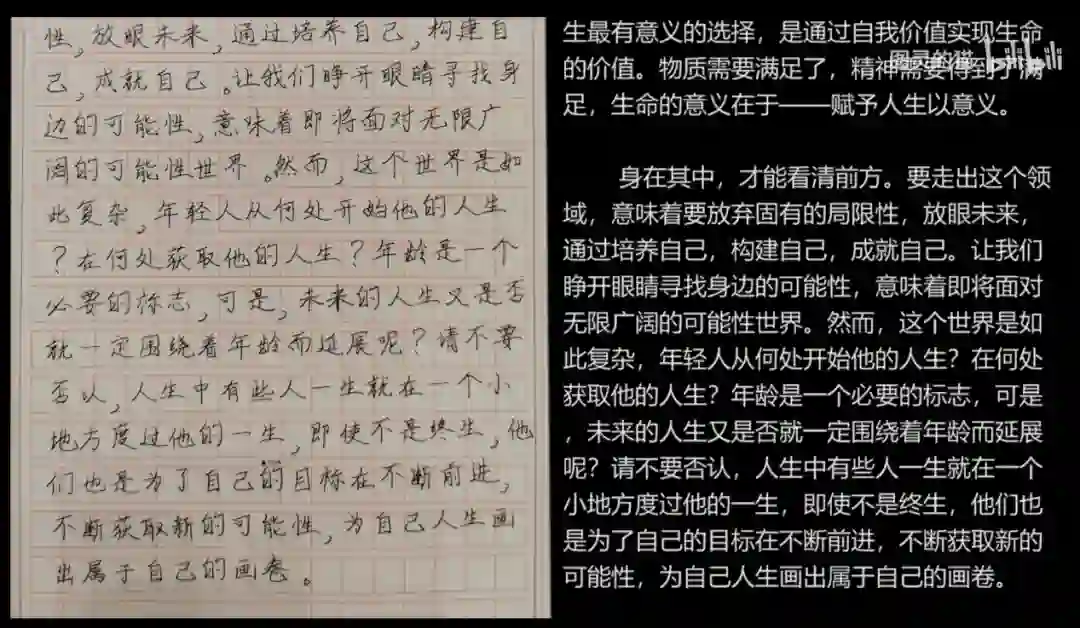 性，放眼未来，通过培养自己，构建自
己，成就自己。让我们睁开眼睛寻找身
边的可能性，意味着即将面对无限广
阔的可能性世界。然而，这个世界是如
此复杂，年轻人从何处开始他的人生
？在何处获取他的人生？年龄是一个
必要的标志，可是，未来的人生又是否
就一定围绕着年龄而延展呢？请不要
否认，人生中有些人一生就在一个小
地方度过他的一生，即使不是终生，他
们也是为了自己的目标在不断前进，
不断获取新的可能性，为自己人生画
出属于自己的画卷。
生最有意义的选择，是通过自我价值实现生命
的价值。物质需要满足了，精神需要得到了满
足，生命的意义在于——赋予人生以意义。
身在其中，才能看清前方。要走出这个领
域，意味着要放弃固有的局限性，放眼未来，
通过培养自己，构建自己，成就自己。让我们
睁开眼睛寻找身边的可能性，意味着即将面对
无限广阔的可能性世界。然而，这个世界是如
此复杂，年轻人从何处开始他的人生？在何处
获取他的人生？年龄是一个必要的标志，可是
，未来的人生又是否就一定围绕着年龄而延展
呢？请不要否认，人生中有些人一生就在一个
小地方度过他的一生，即使不是终生，他们也
是为了自己的目标在不断前进，不断获取新的
可能性，为自己人生画出属于自己的画卷。
图灵的猫 bilibili